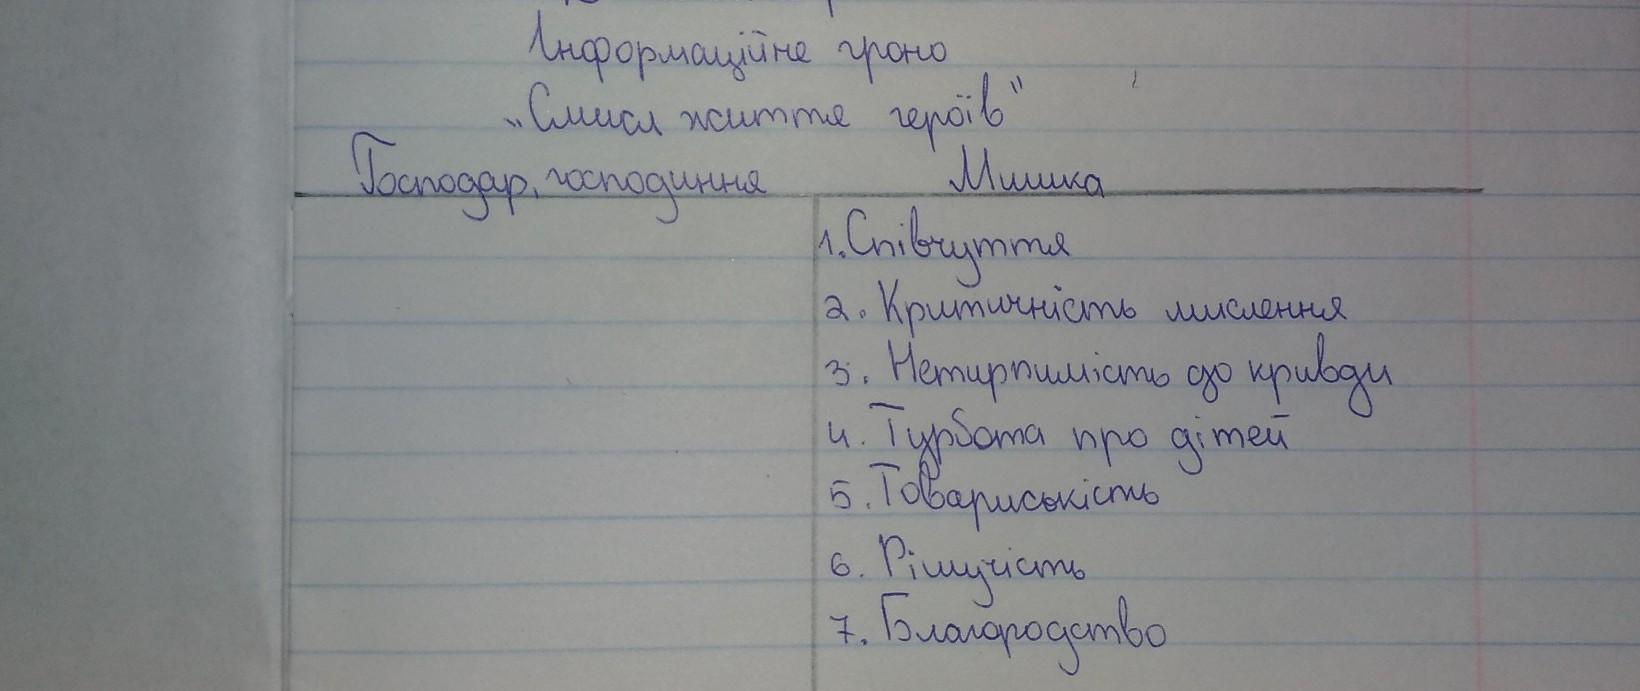 Інформаційне ґроно
„Смисл життя героїв"
Господар, господиння Мишка
1. Співчуття
2. Критичність мислення
3. Нетирпимість до кривди
4. Турбота про дітей
5. Товариськість
6. Рішучість
7. Благородство